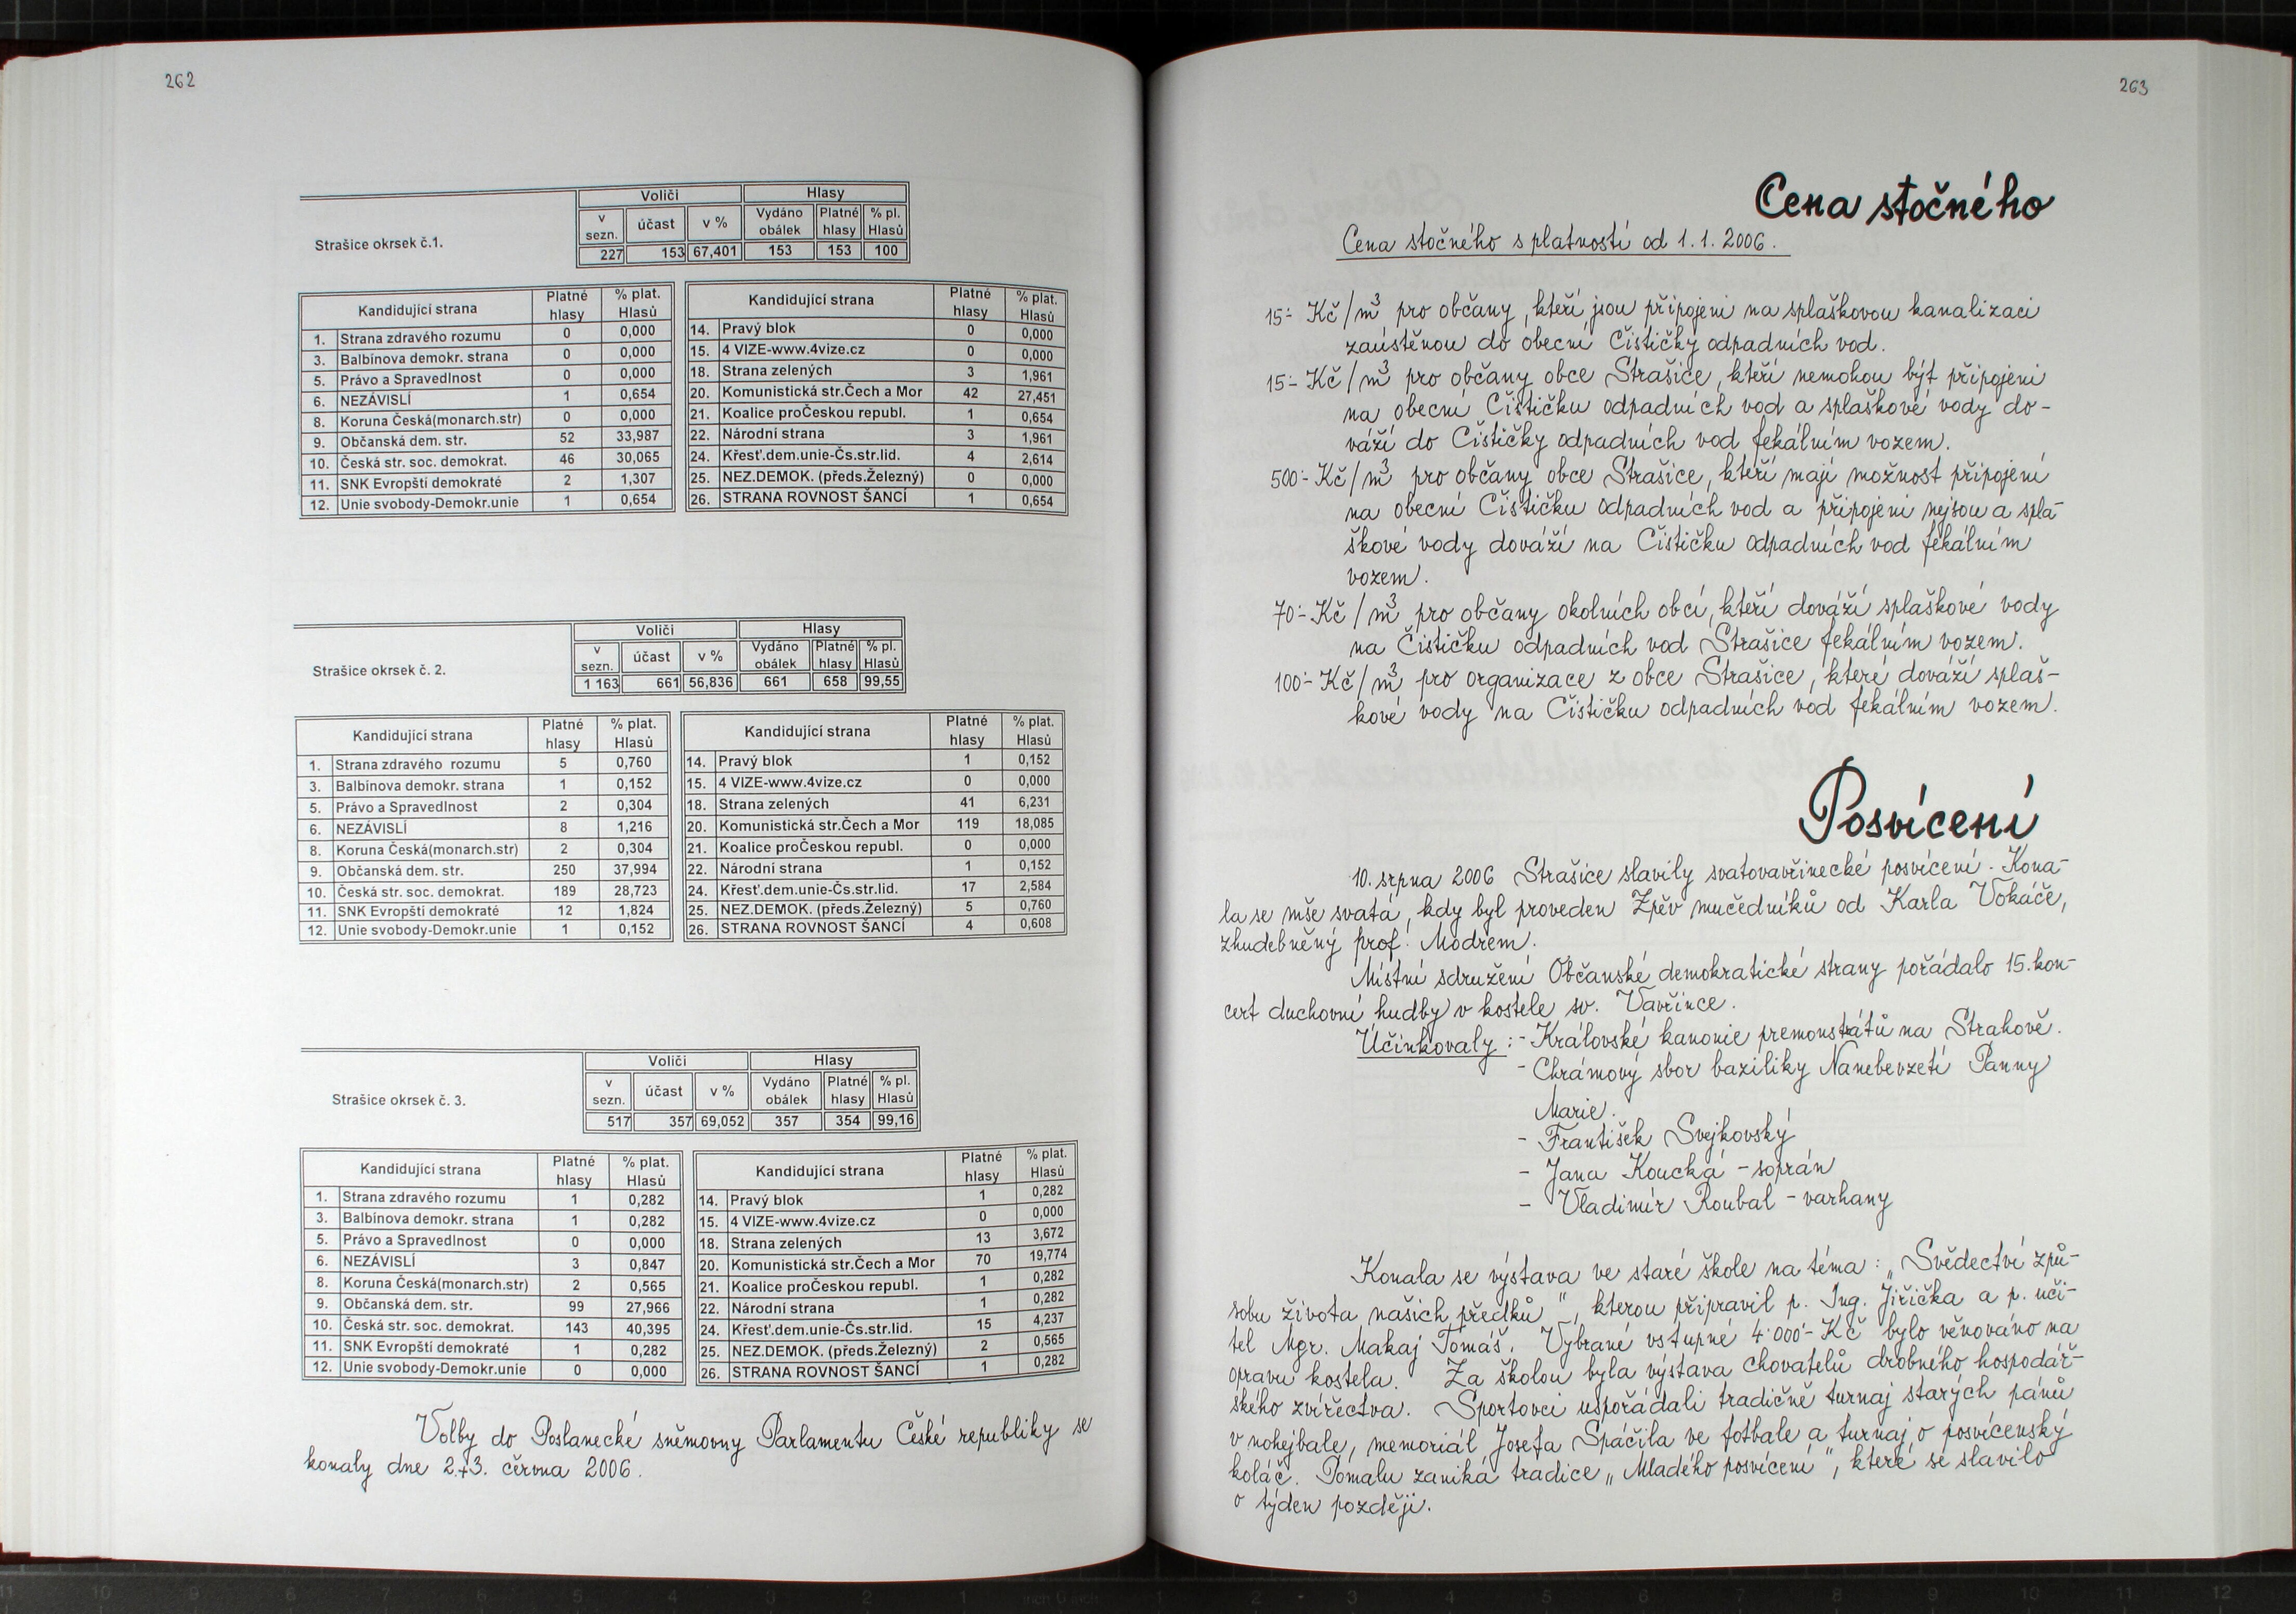 262
Strašice okrsek č.1.
Voliči Hlasy
v sezn. účast v % Vydáno obálek Platné hlasy % pl. Hlasů
227 153 67,401 153 153 100
Kandidující strana Platné hlasy % plat. Hlasů
1. Strana zdravého rozumu 0 0,000
3. Balbínova demokr. strana 0 0,000
5. Právo a Spravedlnost 0 0,000
6. NEZÁVISLÍ 1 0,654
8. Koruna Česká(monarch.str) 0 0,000
9. Občanská dem. str. 52 33,987
10. Česká str. soc. demokrat. 46 30,065
11. SNK Evropští demokraté 2 1,307
12. Unie svobody-Demokr.unie 1 0,654
Kandidující strana Platné hlasy % plat. Hlasů
14. Pravý blok 0 0,000
15. 4 VIZE-www.4vize.cz 0 0,000
18. Strana zelených 3 1,961
20. Komunistická str.Čech a Mor 42 27,451
21. Koalice proČeskou republ. 1 0,654
22. Národní strana 3 1,961
24. Křesť.dem.unie-Čs.str.lid. 4 2,614
25. NEZ.DEMOK. (předs.Železný) 0 0,000
26. STRANA ROVNOST ŠANCÍ 1 0,654
Strašice okrsek č. 2.
Voliči Hlasy
v sezn. účast v % Vydáno obálek Platné hlasy % pl. Hlasů
1 163 661 56,836 661 658 99,55
Kandidující strana Platné hlasy % plat. Hlasů
1. Strana zdravého rozumu 5 0,760
3. Balbínova demokr. strana 1 0,152
5. Právo a Spravedlnost 2 0,304
6. NEZÁVISLÍ 8 1,216
8. Koruna Česká(monarch.str) 2 0,304
9. Občanská dem. str. 250 37,994
10. Česká str. soc. demokrat. 189 28,723
11. SNK Evropští demokraté 12 1,824
12. Unie svobody-Demokr.unie 1 0,152
Kandidující strana Platné hlasy % plat. Hlasů
14. Pravý blok 1 0,152
15. 4 VIZE-www.4vize.cz 0 0,000
18. Strana zelených 41 6,231
20. Komunistická str.Čech a Mor 119 18,085
21. Koalice proČeskou republ. 0 0,000
22. Národní strana 1 0,152
24. Křesť.dem.unie-Čs.str.lid. 17 2,584
25. NEZ.DEMOK. (předs.Železný) 5 0,760
26. STRANA ROVNOST ŠANCÍ 4 0,608
Strašice okrsek č. 3.
Voliči Hlasy
v sezn. účast v % Vydáno obálek Platné hlasy % pl. Hlasů
517 357 69,052 357 354 99,16
Kandidující strana Platné hlasy % plat. Hlasů
1. Strana zdravého rozumu 1 0,282
3. Balbínova demokr. strana 1 0,282
5. Právo a Spravedlnost 0 0,000
6. NEZÁVISLÍ 3 0,847
8. Koruna Česká(monarch.str) 2 0,565
9. Občanská dem. str. 99 27,966
10. Česká str. soc. demokrat. 143 40,395
11. SNK Evropští demokraté 1 0,282
12. Unie svobody-Demokr.unie 0 0,000
Kandidující strana Platné hlasy % plat. Hlasů
14. Pravý blok 1 0,282
15. 4 VIZE-www.4vize.cz 0 0,000
18. Strana zelených 13 3,672
20. Komunistická str.Čech a Mor 70 19,774
21. Koalice proČeskou republ. 1 0,282
22. Národní strana 1 0,282
24. Křesť.dem.unie-Čs.str.lid. 15 4,237
25. NEZ.DEMOK. (předs.Železný) 2 0,565
26. STRANA ROVNOST ŠANCÍ 1 0,282
Volby do Poslanecké sněmovny Parlamentu České republiky se
konaly dne 2.+3. června 2006.
263
Cena stočného
Cena stočného s platností od 1.1.2006.
15.- Kč/m3 pro občany, kteří jsou připojeni na splaškovou kanalizaci
zaústěnou do obecní Čističky odpadních vod.
15.- Kč/m3 pro občany obce Strašice, kteří nemohou být připojeni
na obecní Čističku odpadních vod a splaškové vody do-
váží do Čističky odpadních vod fekálním vozem.
500.- Kč/m3 pro občany obce Strašice, kteří mají možnost připojení
na obecní Čističku odpadních vod a připojeni nejsou a spla-
škové vody dováží na Čističku odpadních vod fekálním
vozem.
70.- Kč/m3 pro občany okolních obcí, kteří dováží splaškové vody
na Čističku odpadních vod Strašice fekálním vozem.
100.- Kč/m3 pro organizace z obce Strašice, které dováží splaš-
kové vody na Čističku odpadních vod fekálním vozem.
Posvícení
10. srpna 2006 Strašice slavily svatovavřinecké posvícení. Kona-
la se mše svatá, kdy byl proveden Zpěv mučedníků od Karla Vokáče,
zhudebněný prof. Modrem.
Místní sdružení Občanské demokratické strany pořádalo 15. kon-
cert duchovní hudby v kostele sv. Vavřince.
Účinkovaly: - Královské kanonie premonstrátů na Strahově.
- Chrámový sbor baziliky Nanebevzetí Panny
Marie.
- František Svejkovský
- Jana Koucká - soprán
- Vladimír Roubal - varhany
Konala se výstava ve staré škole na téma: „Svědectví způ-
sobu života našich předků", kterou připravil p. Ing. Jiřička a p. uči-
tel Mgr. Makaj Tomáš. Vybrané vstupné 4.000.- Kč bylo věnováno na
opravu kostela. Za školou byla výstava chovatelů drobného hospodář-
ského zvířectva. Sportovci uspořádali tradičně turnaj starých pánů
v nohejbale, memoriál Josefa Spáčila ve fotbale a turnaj o posvícenský
koláč. Pomalu zaniká tradice „Mladého posvícení", které se slavilo
o týden později.